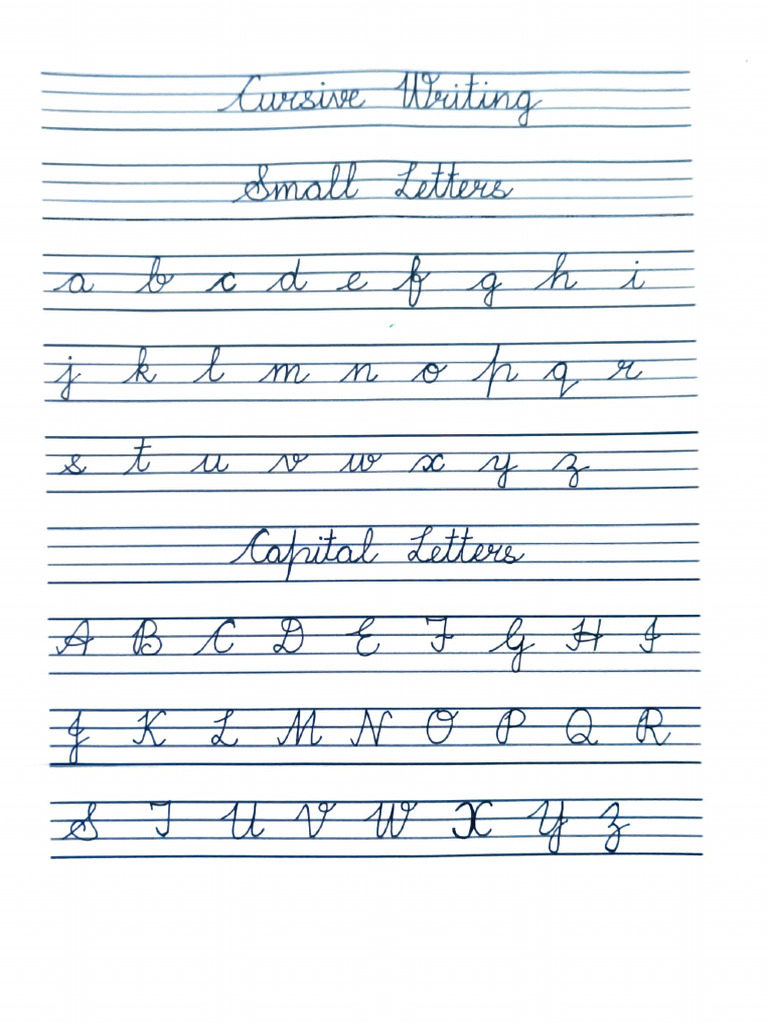 Cursive Writing
Small Letters
a b c d e f g h i
j k l m n o p q r
s t u v w x y z
Capital Letters
A B C D E F G H I
J K L M N O P Q R
S T U V W X Y Z